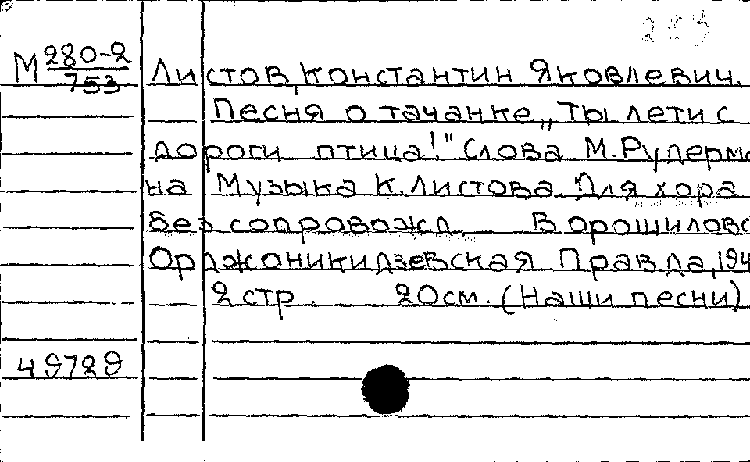 М 280-2
753
Листов, Константин Яковлевич.
Песня о тачанке „Ты лети с
дороги птица!" Слова М. Рудерма
на Музыка К. Листова. Для хора
без сопровожд. Ворошиловс
Орджоникидзевская Правда, 194
2 стр. 20 см. (Наши песни)
49729